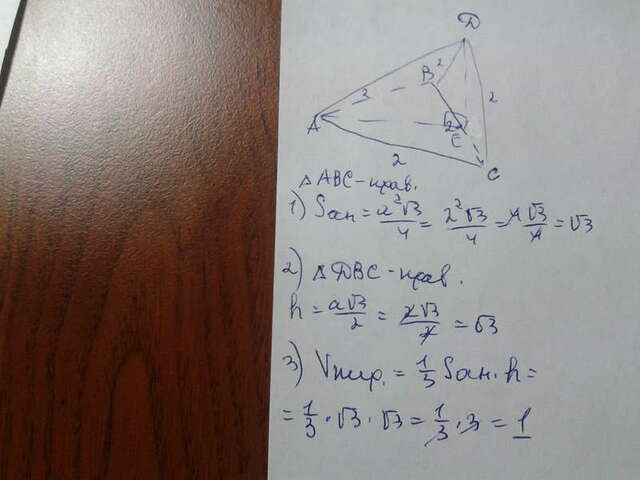 D
B 2
2
2
A
2
E
2
C
△ ABC - прав.
1) Sосн = a²√3/4 = 2²√3/4 = 4√3/4 = √3
2) △ DBC - прав.
h = a√3/2 = 2√3/2 = √3
3) Vпир. = 1/3 Sосн. · h =
= 1/3 · √3 · √3 = 1/3 · 3 = 1